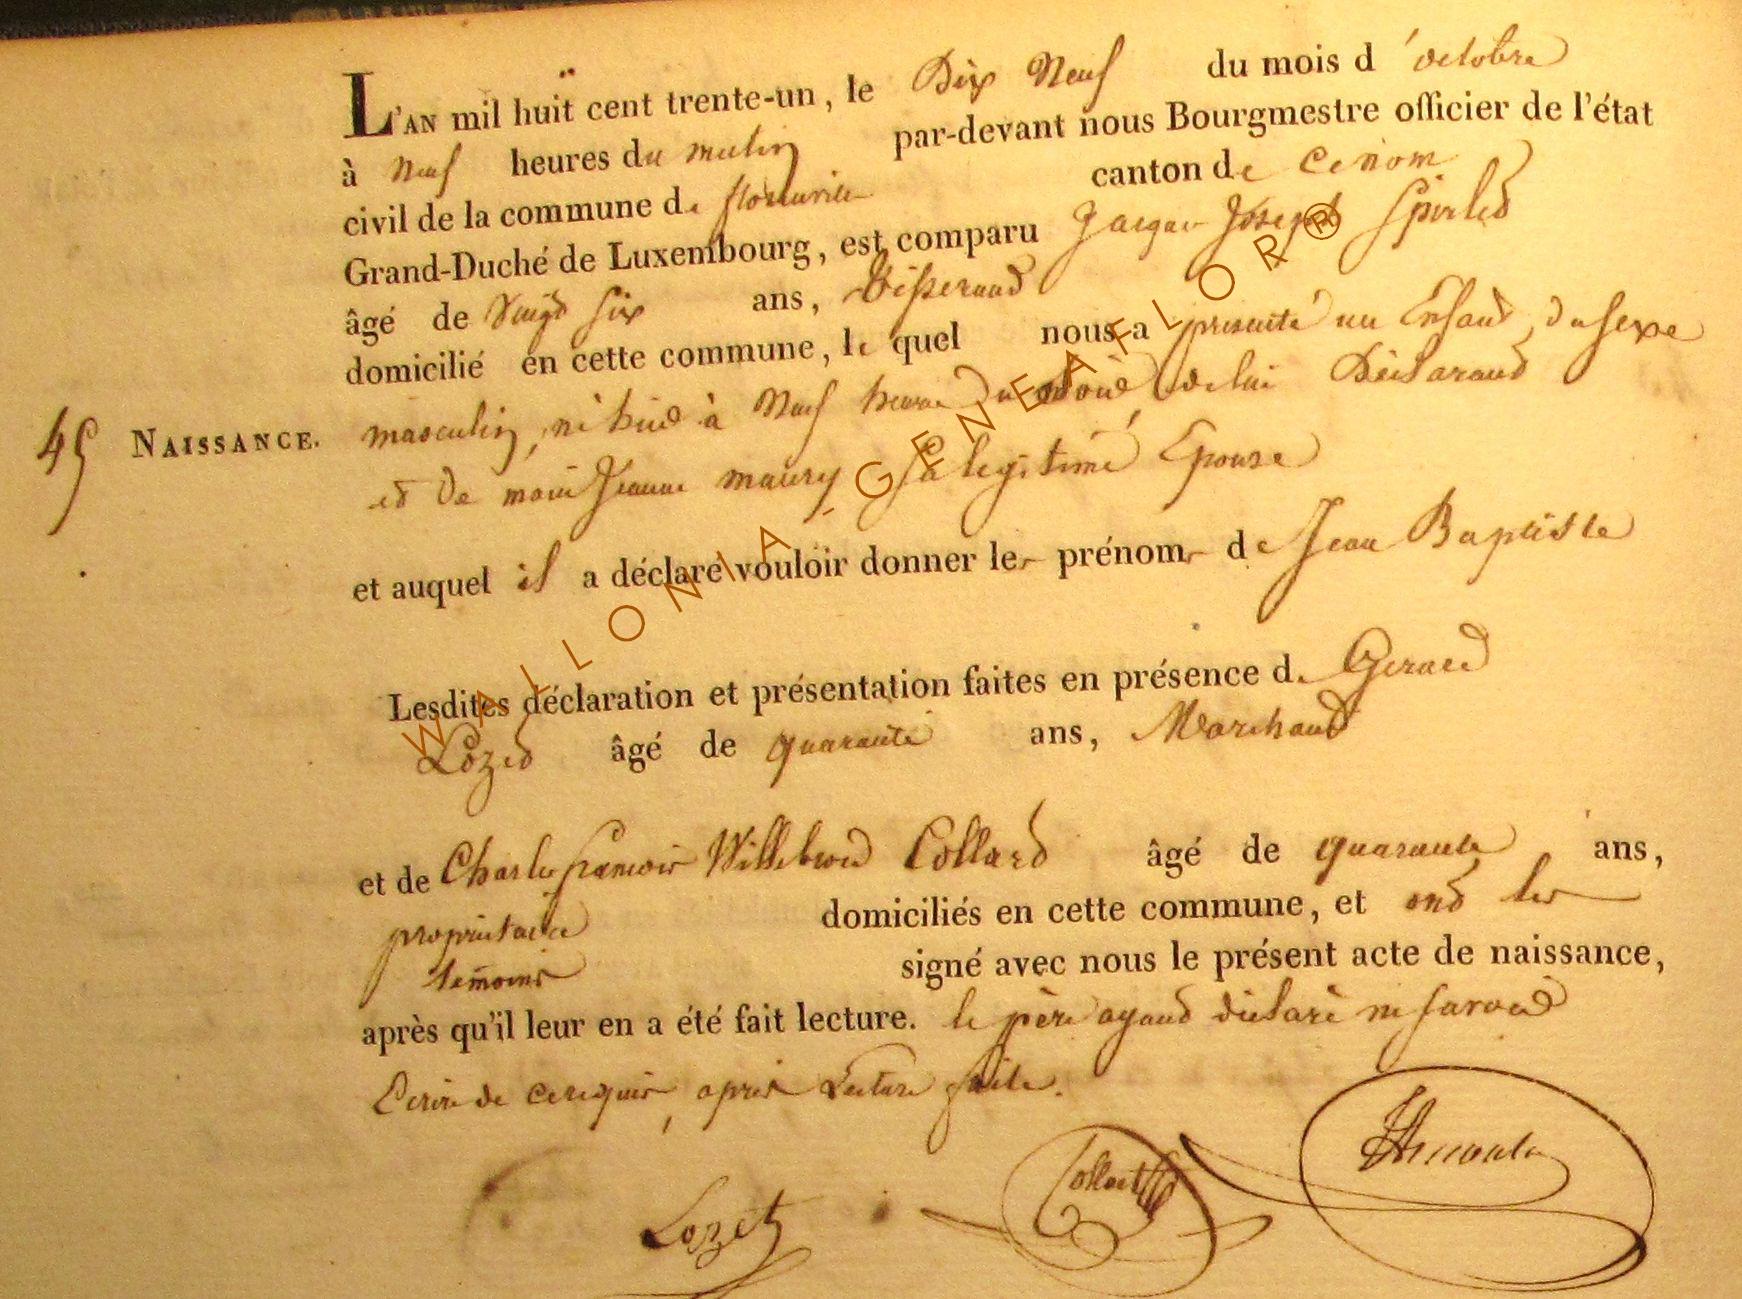 L'AN mil huït cent trente-un, le Dix Neuf du mois d'octobre
à Neuf heures du matin par-devant nous Bourgmestre officier de l'état
civil de la commune de florenville canton de
Grand-Duché de Luxembourg, est comparu Jacque Joseph Spirlet
âgé de Vingt six ans, tisserand
domicilié en cette commune, le quel nous a presenté un Enfant du sexe
45 NAISSANCE. masculin, né hier à Neuf heures du soir de lui Déclarant
et de marie Jeanne maury Sa legitime Epouse
et auquel il a déclaré vouloir donner les prénoms de Jean Baptiste
Lesdites déclaration et présentation faites en présence de Gerard
Lozet âgé de quarante ans, Marchand
et de Charles francois Willebrord Collard âgé de quarante ans,
proprietaire domiciliés en cette commune, et ont les
temoins signé avec nous le présent acte de naissance,
après qu'il leur en a été fait lecture. le père ayant déclaré ne savoir
Ecrire de ce requis, après Lecture faite.
Lozet Collart
WALLONIA-GENEAFLOR®